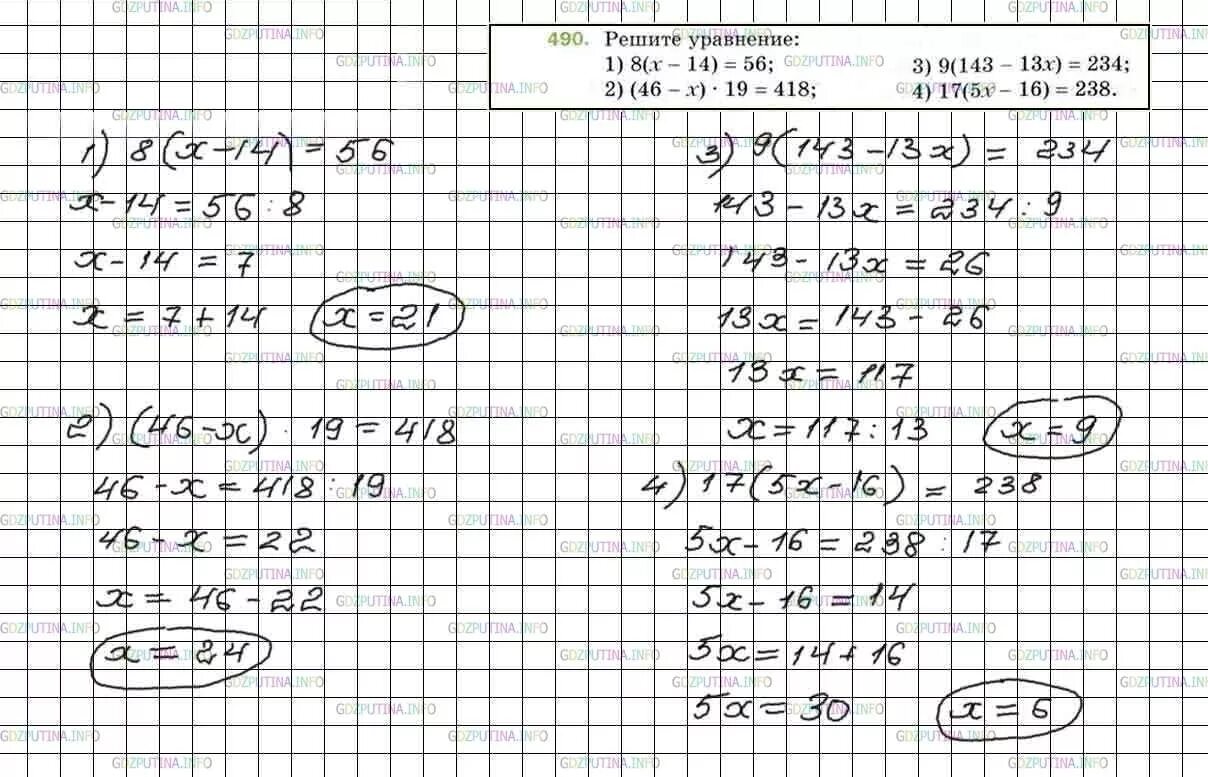 490. Решите уравнение:
1) 8(x − 14) = 56;
2) (46 − x) · 19 = 418;
3) 9(143 − 13x) = 234;
4) 17(5x − 16) = 238.
1) 8(x-14) = 56
x-14 = 56 : 8
x - 14 = 7
x = 7 + 14
x = 21
2) (46-x) · 19 = 418
46 - x = 418 : 19
46 - x = 22
x = 46 - 22
x = 24
3) 9(143-13x) = 234
143 - 13x = 234 : 9
143 - 13x = 26
13x = 143 - 26
13x = 117
x = 117 : 13
x = 9
4) 17(5x-16) = 238
5x - 16 = 238 : 17
5x - 16 = 14
5x = 14 + 16
5x = 30
x = 6
GDZPUTINA.INFO